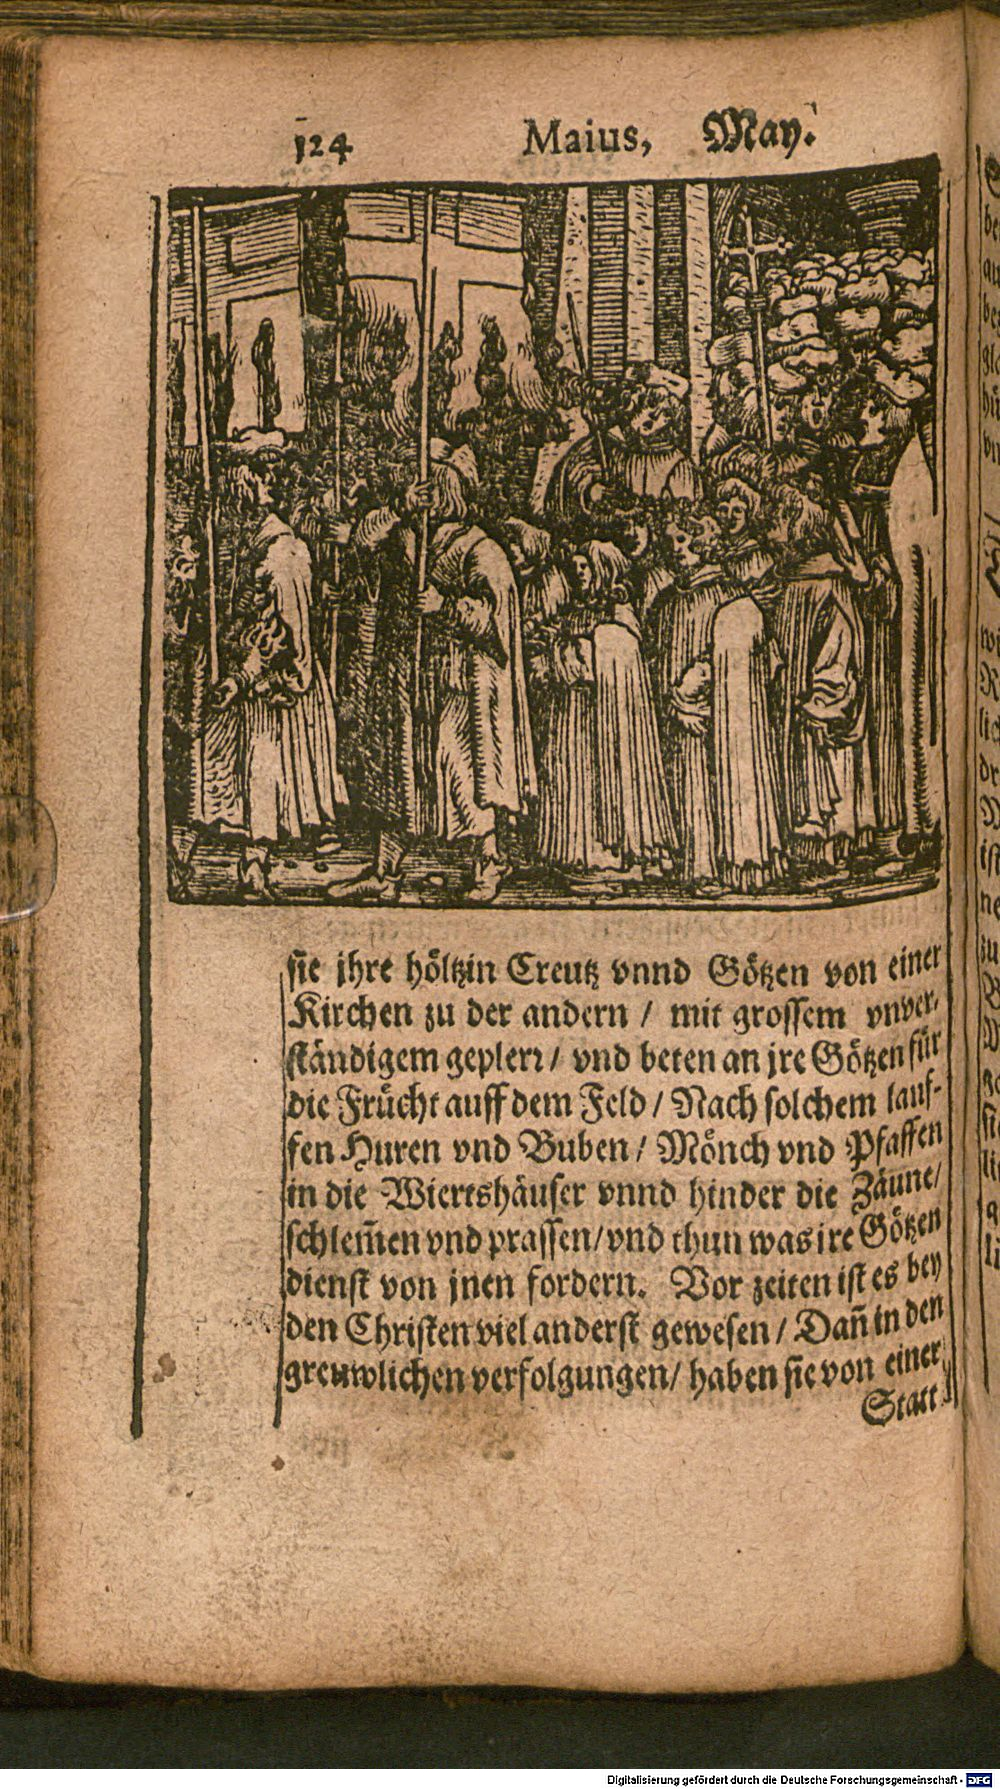 124 Maius, May.
sie jhre höltzin Creutz vnnd Götzen von einer
Kirchen zu der andern / mit grossem vnver-
ständigem geplerr / vnd beten an jre Götzen für
die Frücht auff dem Feld / Nach solchem lauf-
fen Huren vnd Buben / Mönch vnd Pfaffen
in die Wiertshäuser vnnd hinder die Zäune /
schlem̃en vnd prassen / vnd thun was jre Götzen
dienst von jnen fordern. Vor zeiten ist es bey
den Christen viel anderst gewesen / Dañ in den
grewlichen verfolgungen / haben sie von einer
Statt
Digitalisierung gefördert durch die Deutsche Forschungsgemeinschaft - DFG